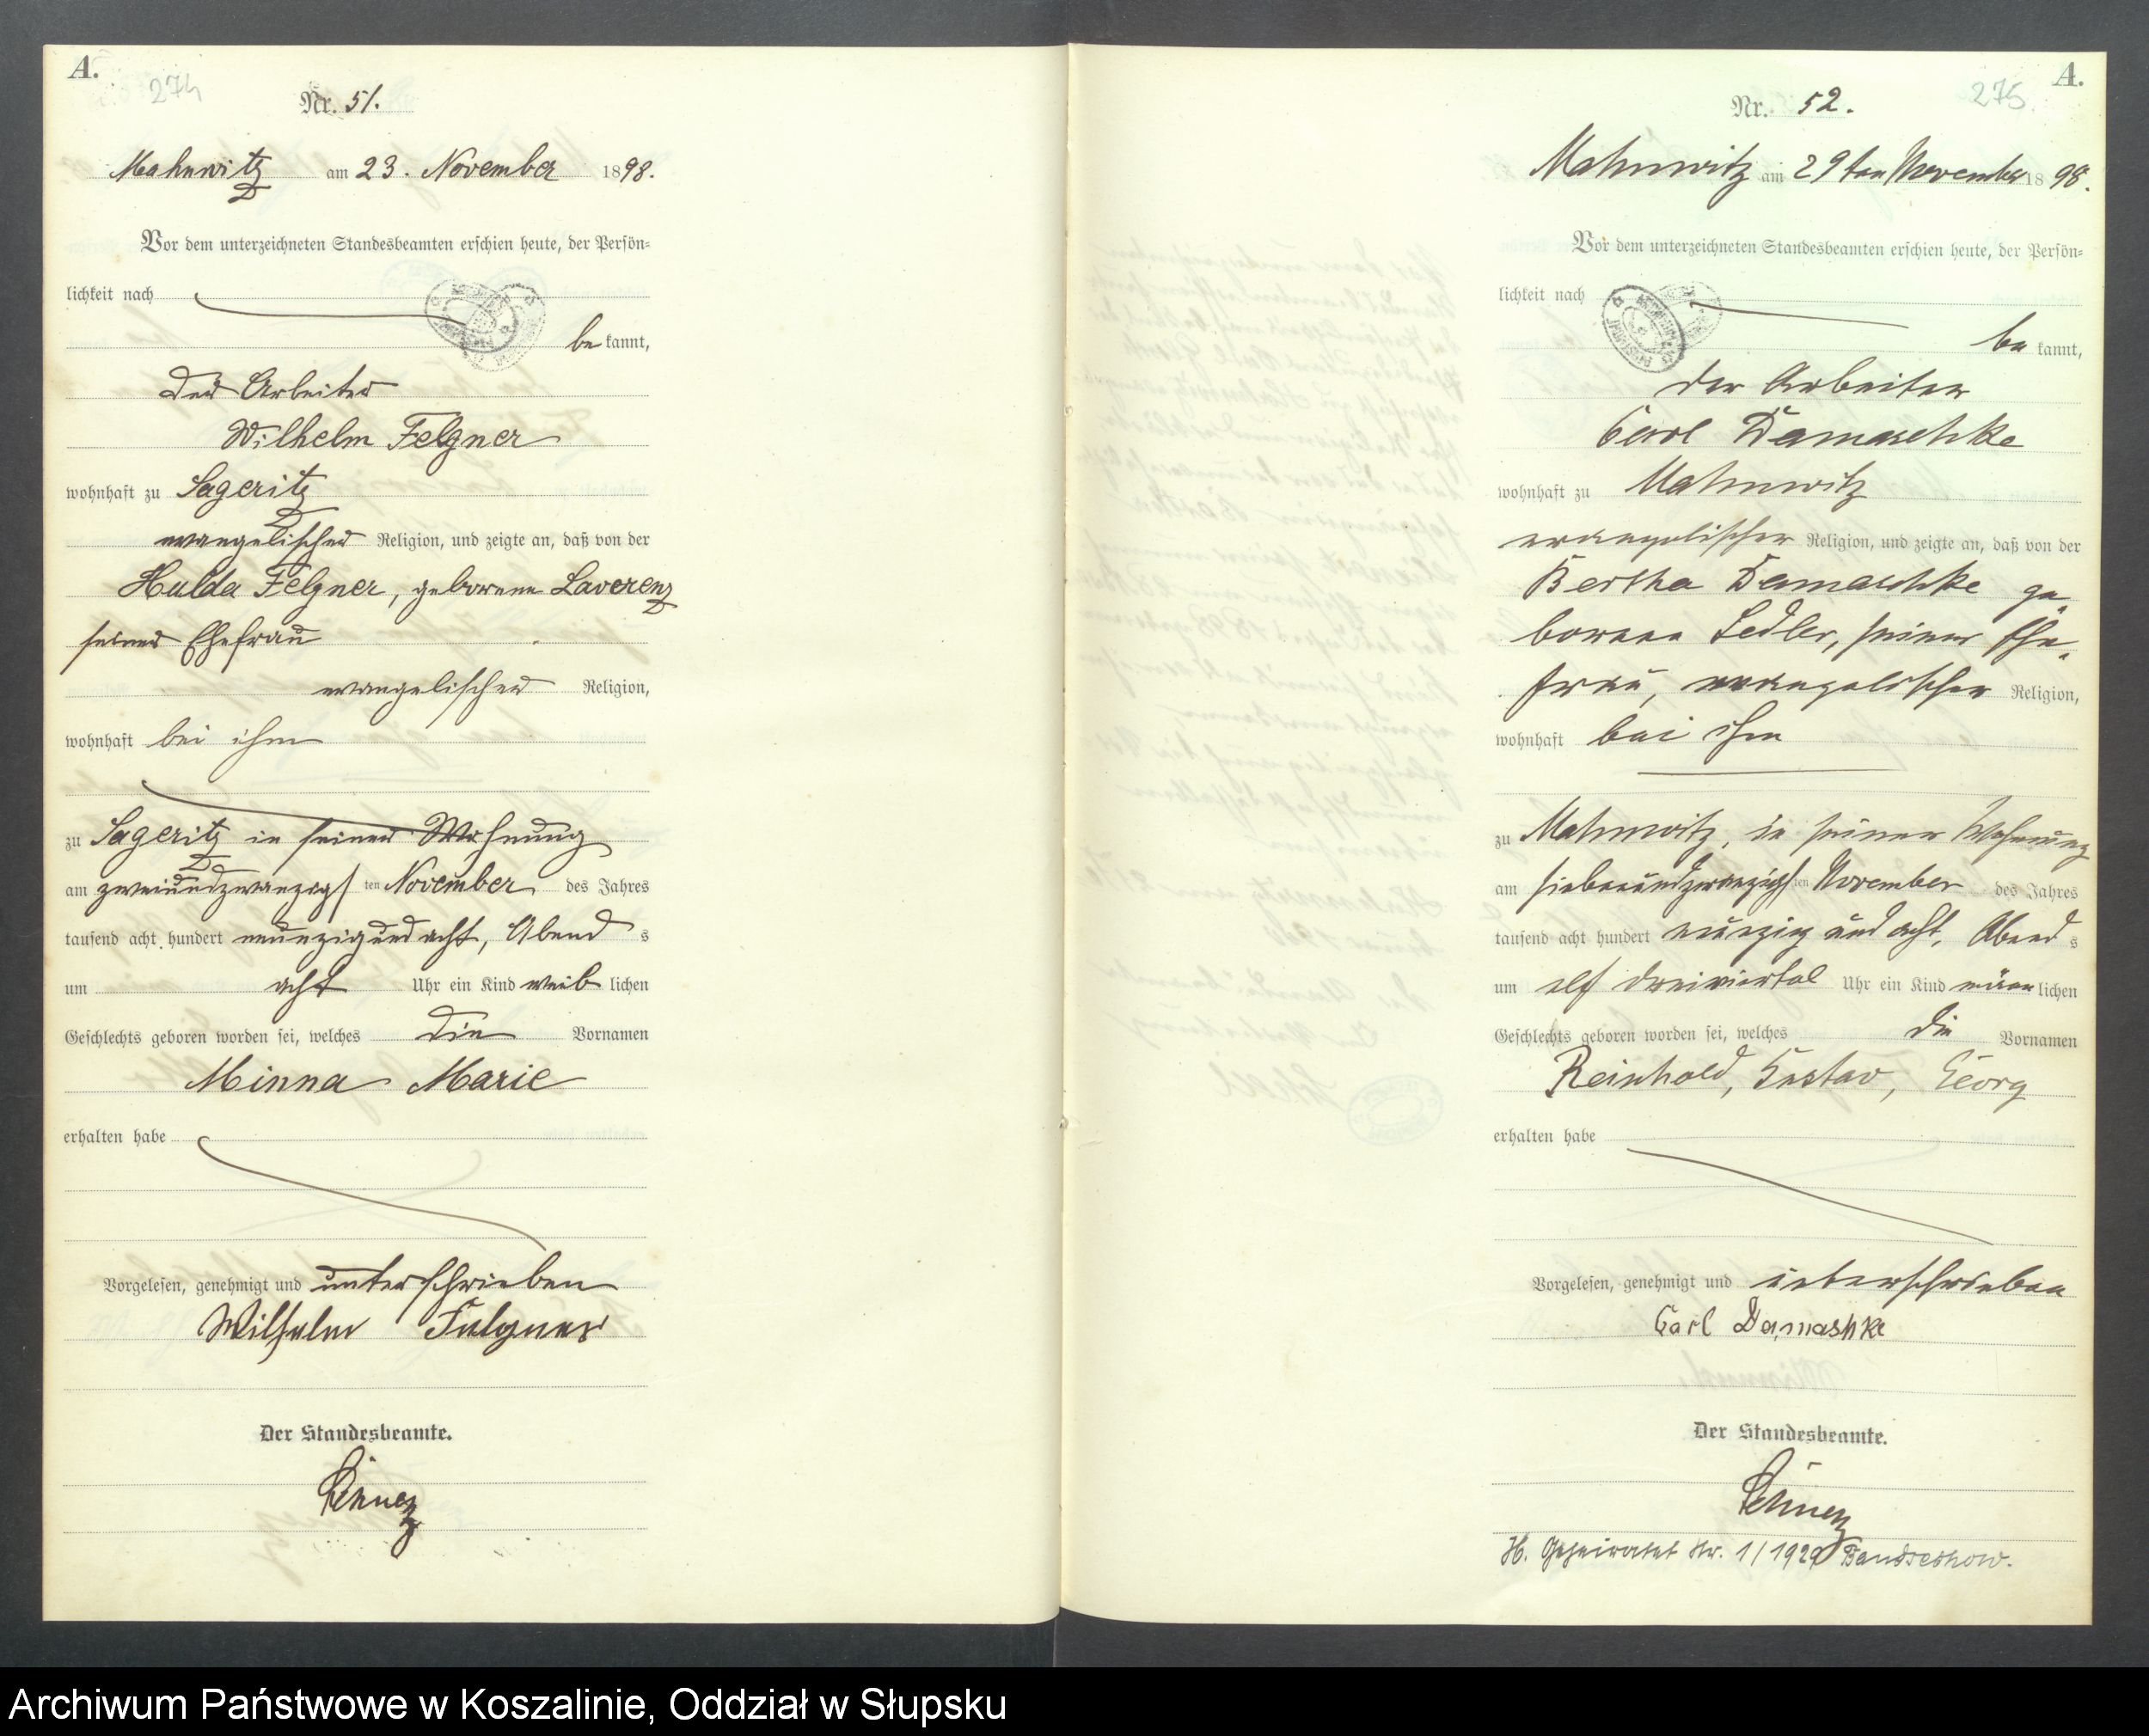 A.
274
Nr. 51.
Mahnwitz am 23. November 1898.
Vor dem unterzeichneten Standesbeamten erschien heute, der Persön-
lichkeit nach
be kannt,
der Arbeiter
Wilhelm Felgner
wohnhaft zu Sageritz
evangelischer Religion, und zeigte an, daß von der
Hulda Felgner, geborene Laverenz
seiner Ehefrau
evangelischer Religion,
wohnhaft bei ihm
zu Sageritz in seiner Wohnung
am zweiundzwanzigsten November des Jahres
tausend acht hundert neunzig und acht, Abends
um acht Uhr ein Kind weiblichen
Geschlechts geboren worden sei, welches die Vornamen
Minna Marie
erhalten habe
Vorgelesen, genehmigt und unterschrieben
Wilhelm Felgner
Der Standesbeamte.
A.
275
Nr. 52.
Mahnwitz am 29ten November 1898.
Vor dem unterzeichneten Standesbeamten erschien heute, der Persön-
lichkeit nach
be kannt,
der Arbeiter
Carl Damaschke
wohnhaft zu Mahnwitz
evangelischer Religion, und zeigte an, daß von der
Bertha Damaschke ge-
borene Sedler, seiner Ehe-
frau, evangelischer Religion,
wohnhaft bei ihm
zu Mahnwitz, in seiner Wohnung
am siebenundzwanzigsten November des Jahres
tausend acht hundert neunzig und acht, Abends
um elf dreiviertel Uhr ein Kind männlichen
Geschlechts geboren worden sei, welches die Vornamen
Reinhold, Gustav, Georg
erhalten habe
Vorgelesen, genehmigt und unterschrieben
Carl Damashke
Der Standesbeamte.
H. Geheiratet Nr. 1/1929
Archiwum Państwowe w Koszalinie, Oddział w Słupsku